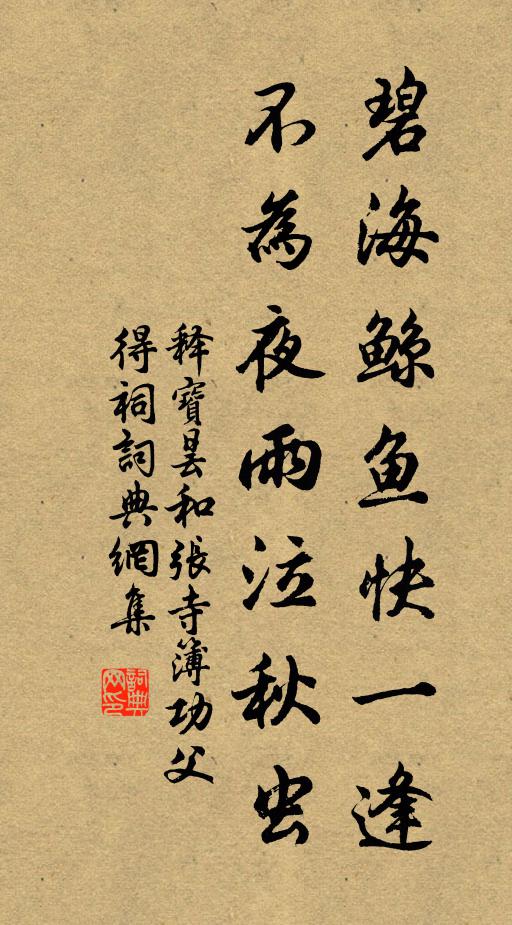 碧海鲸鱼快一逢
不為夜雨泣秋虫
释寶曇和張寺簿功父
得祠詞典網集
詞典网印